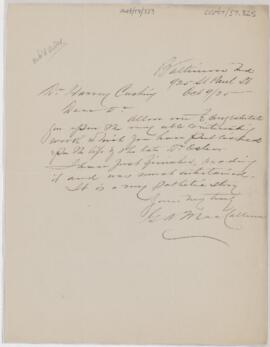 Baltimore Md
925 St Paul St
Oct 9/25
Dr Harvey Cushing
Dear Dr
Allow me to congratulate
you upon the very able
work which you have just
upon the life of the late Dr Osler
I have just finished reading
it and was much entertained.
It is a very pathetic story
Yours very truly
G A MacCallum